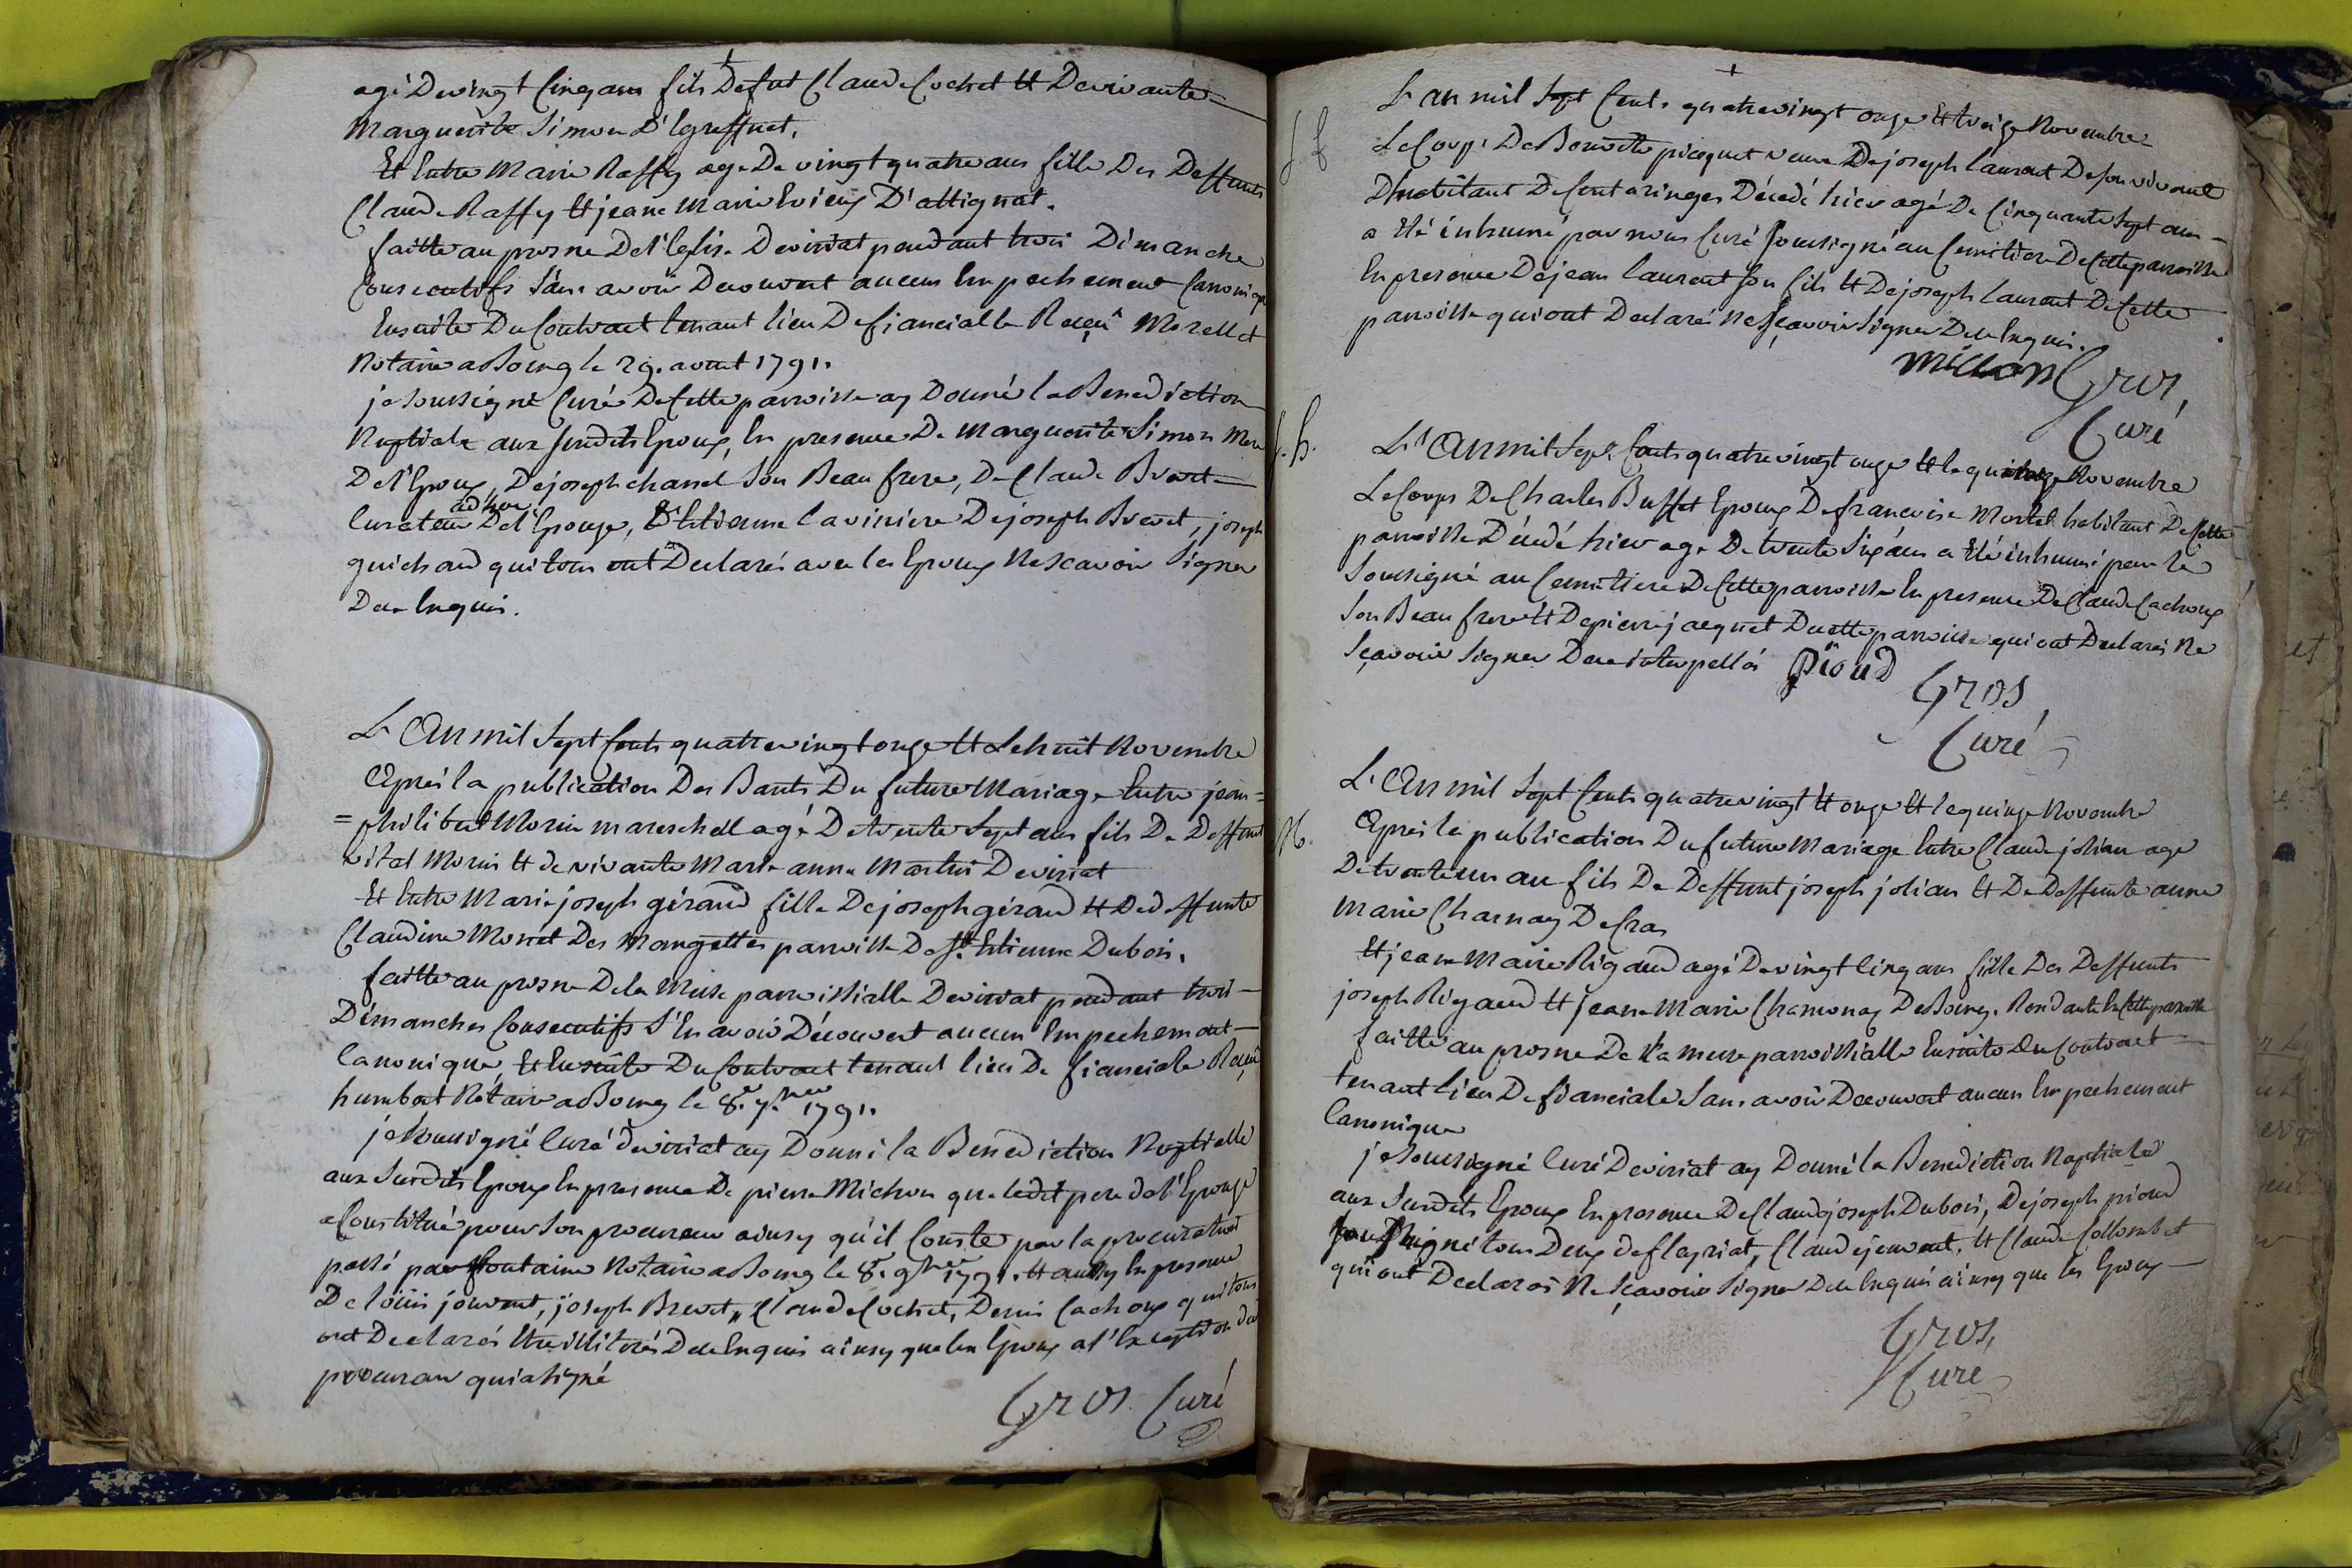 agé De vingt Cinq ans fils Defut Claude Cochet Et De vivante
Marguerite Simon D'Egreffnet,
Et Entre Marie Raffy age De vingt quatre ans fille Des Deffunts
Claude Raffy Et jeane Marie D'attignat.
faitte au prosne De l'Eglise De viriat pendant trois Dimanche
Consecutifs Sans avoir Decouvert aucun Empechement Canonique
Ensuite Du Contract tenant lieu De fianciallle Reçeu Morellet
Notaire a Bourg le 29. aout 1791.
je Soussigné Curé De Cette parroisse ay Donné la Benediction
Nuptiale aux Susdits Epoux, En presence De Marguerite Simon Mere
De l'Epoux, De joseph chanel Son Beau frere, De Claude Brevet
ad hoc
Curateur De l'Epouse, D'Etienne laviniere De joseph Brevet, joseph
guichard qui tous ont Declarés avec les Epoux Ne Scavoir Signer
De ce Enquis.
L'An mil Sept Cents quatrevingt onze Et Le huit Novembre
Après la publication Des Bants Du future Mariage Entre jean=
=philibert Morin mareschal agé De trente Sept ans fils De Deffunt
vital Morin Et de vivante Marie anne Martin De viriat
Et Entre Marie joseph géraud fille De joseph géraud Et De deffunte
Claudine Moret Des Mangettes parroisse De St. Etienne Dubois.
faitte au prosne De la Messe parroissialle De viriat pendant trois
Dimanches Consecutifs S'En avoir Découvert aucun Empechement
Canonique, Et Ensuite Du Contract tenant lieu De fianciale Reçeu
humbert Notaire a Bourg le 8.e 7.bre 1791.
je Soussigné Curé De viriat ay Donné la Benediction Nuptielle
aux Susdits Epoux En presence De pierre Michon que ledit pere de l'Epouge
a Constitué pour Son procureur ainsy qu'il Conste par la procuration
passé par fontaine Notaire a Bourg le 8.e 9.bre 1791. Et aussy En presence
De loüis jouvent, joseph Brevet, Claude Cochet, Denis Cachoux qui tous
ont Declarés Etre illiterés De ce Enquis ainsy que les Epoux a l'Exception du
procureur qui a Signé
Gros Curé
L'an mil Sept Cents quatrevingt onze Et treize Novembre
Le Corps De Benoite picquet veuve De joseph laurent De Son vivant
D'habitant De Centaringes Décedé hier agé De Cinquante Sept ans
a Eté inhumé par nous Curé Soussigné au Cemitiere De Cette parroisse
En presence De jean laurent Son fils Et De joseph laurent De Cette
parroisse qui ont Declarés Ne Sçavoir Signer De ce Enquis.
Millon Gros,
Curé
L'An mil Sept Cents quatrevingt onze Et le quinze Novembre
Le Corps De Charles Buffet Epoux De francoise Mortel habitant De Cette
parroisse Décedé hier age De trente Six ans a Eté inhumé par le
Soussigné au Cemitiere De Cette parroisse En presence De Claude Cachoux
Son Beau frere Et De pierre jacquet De cette parroisse qui ont Declarés Ne
Sçavoir Signer De ce interpellés Pioud
Gros
Curé
M.
L'An mil Sept Cents quatrevingt Et onze Et le quinze Novembre
Après la publication Du future Mariage Entre Claude jolian age
De trente un an fils De Deffunt joseph jolian Et De Deffunte anne
Marie Charnay De Cras
Et jeane Marie Rigaud agé De vingt Cinq ans fille Des Deffunts
joseph Rigaud Et jeane Marie Chamonay De Bourg. Residante En Cette parroisse
faitte au prosne De la messe parroissialle Ensuite Du Contract
tenant lieu De fianciale Sans avoir Decouvert aucun Empechement
Canonique
je Soussigné Curé De viriat ay Donné la Benediction Nuptiale
aux Susdits Epoux En presence De Claude joseph Dubois, De joseph pioud
Soussigné tous Deux de flayriat, Claude jouvent, Et Claude Collombet
qui ont Declarés Ne Sçavoir Signer De ce Enquis ainsy que les Epoux
Gros,
Curé